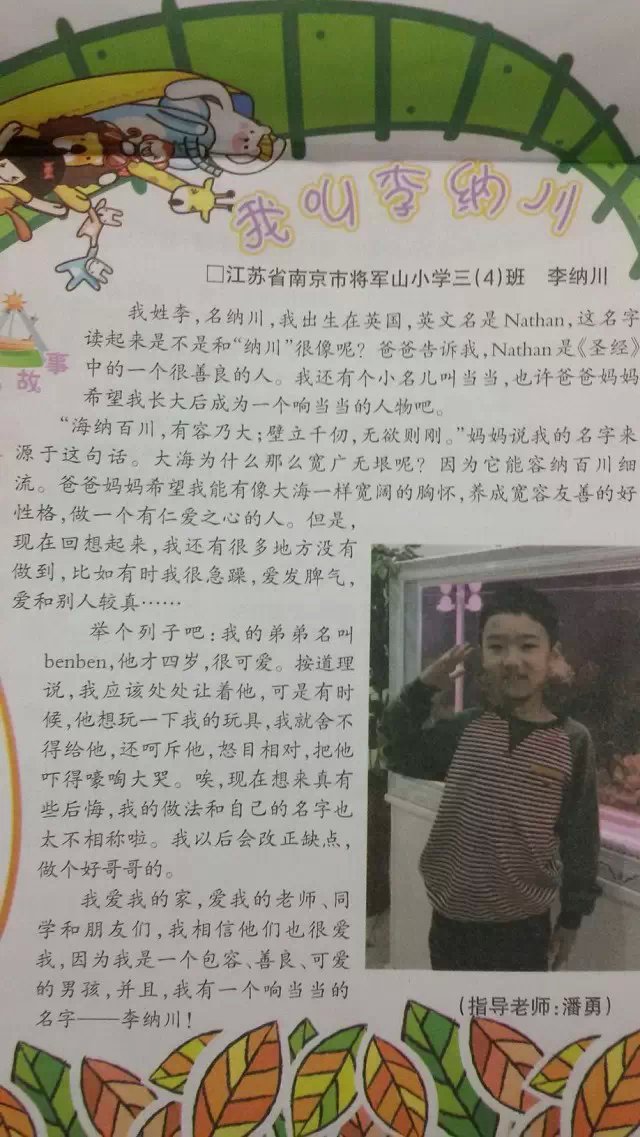 我叫李纳川
□江苏省南京市将军山小学三(4)班 李纳川
故事
我姓李,名纳川,我出生在英国,英文名是Nathan,这名字
读起来是不是和“纳川”很像呢?爸爸告诉我,Nathan是《圣经》
中的一个很善良的人。我还有个小名儿叫当当,也许爸爸妈妈
希望我长大后成为一个响当当的人物吧。
“海纳百川,有容乃大;壁立千仞,无欲则刚。”妈妈说我的名字来
源于这句话。大海为什么那么宽广无垠呢?因为它能容纳百川细
流。爸爸妈妈希望我能有像大海一样宽阔的胸怀,养成宽容友善的好
性格,做一个有仁爱之心的人。但是,
现在回想起来,我还有很多地方没有
做到,比如有时我很急躁,爱发脾气,
爱和别人较真……
举个列子吧:我的弟弟名叫
benben,他才四岁,很可爱。按道理
说,我应该处处让着他,可是有时
候,他想玩一下我的玩具,我就舍不
得给他,还呵斥他,怒目相对,把他
吓得嚎啕大哭。唉,现在想来真有
些后悔,我的做法和自己的名字也
太不相称啦。我以后会改正缺点,
做个好哥哥的。
我爱我的家,爱我的老师、同
学和朋友们,我相信他们也很爱
我,因为我是一个包容、善良、可爱
的男孩,并且,我有一个响当当的
名字——李纳川!
(指导老师:潘勇)